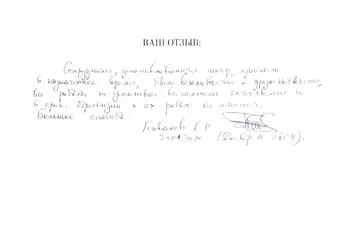 ВАШ ОТЗЫВ:
Сотрудники, устанавливающие шкаф, приехали
в назначенное время, были вежливы и дружелюбны,
все работы по установке выполнили качественно и
в срок. Претензий к их работе не имеется.
Большое спасибо.
Г.Р.